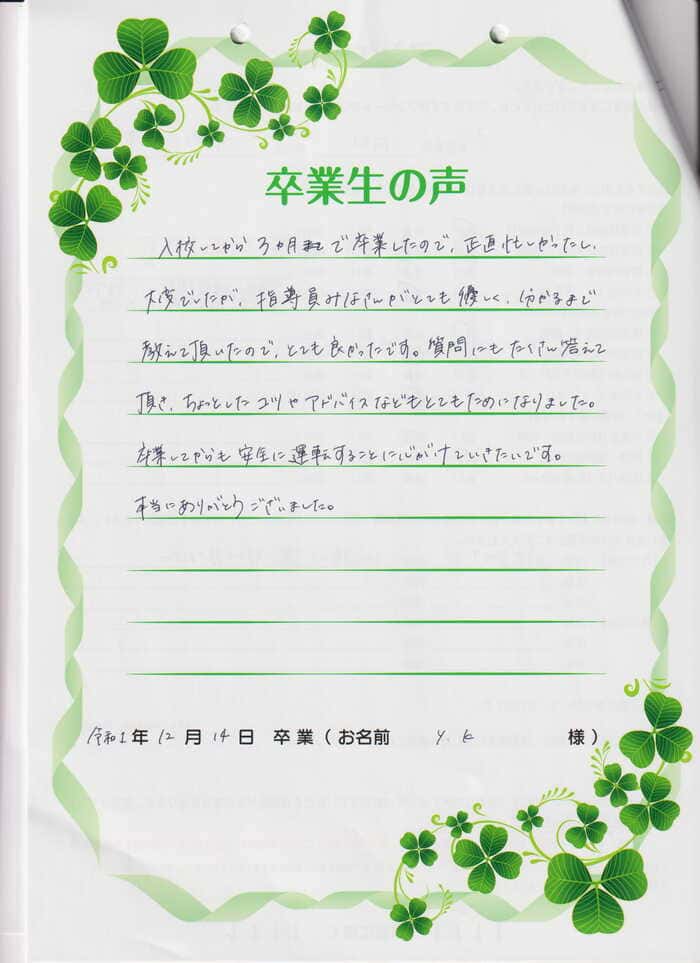 卒業生の声
入校してから3ヵ月で卒業したので、正直忙しかったし、
大変でしたが、指導員みなさんがとても優しく、分かるまで
教えて頂いたので、とても良かったです。質問にもたくさん答えて
頂き、ちょっとしたコツやアドバイスなどもとてもためになりました。
卒業してからも安全に運転することに心がけていきたいです。
本当にありがとうございました。
令和1年12月14日 卒業(お名前 Y.K 様)